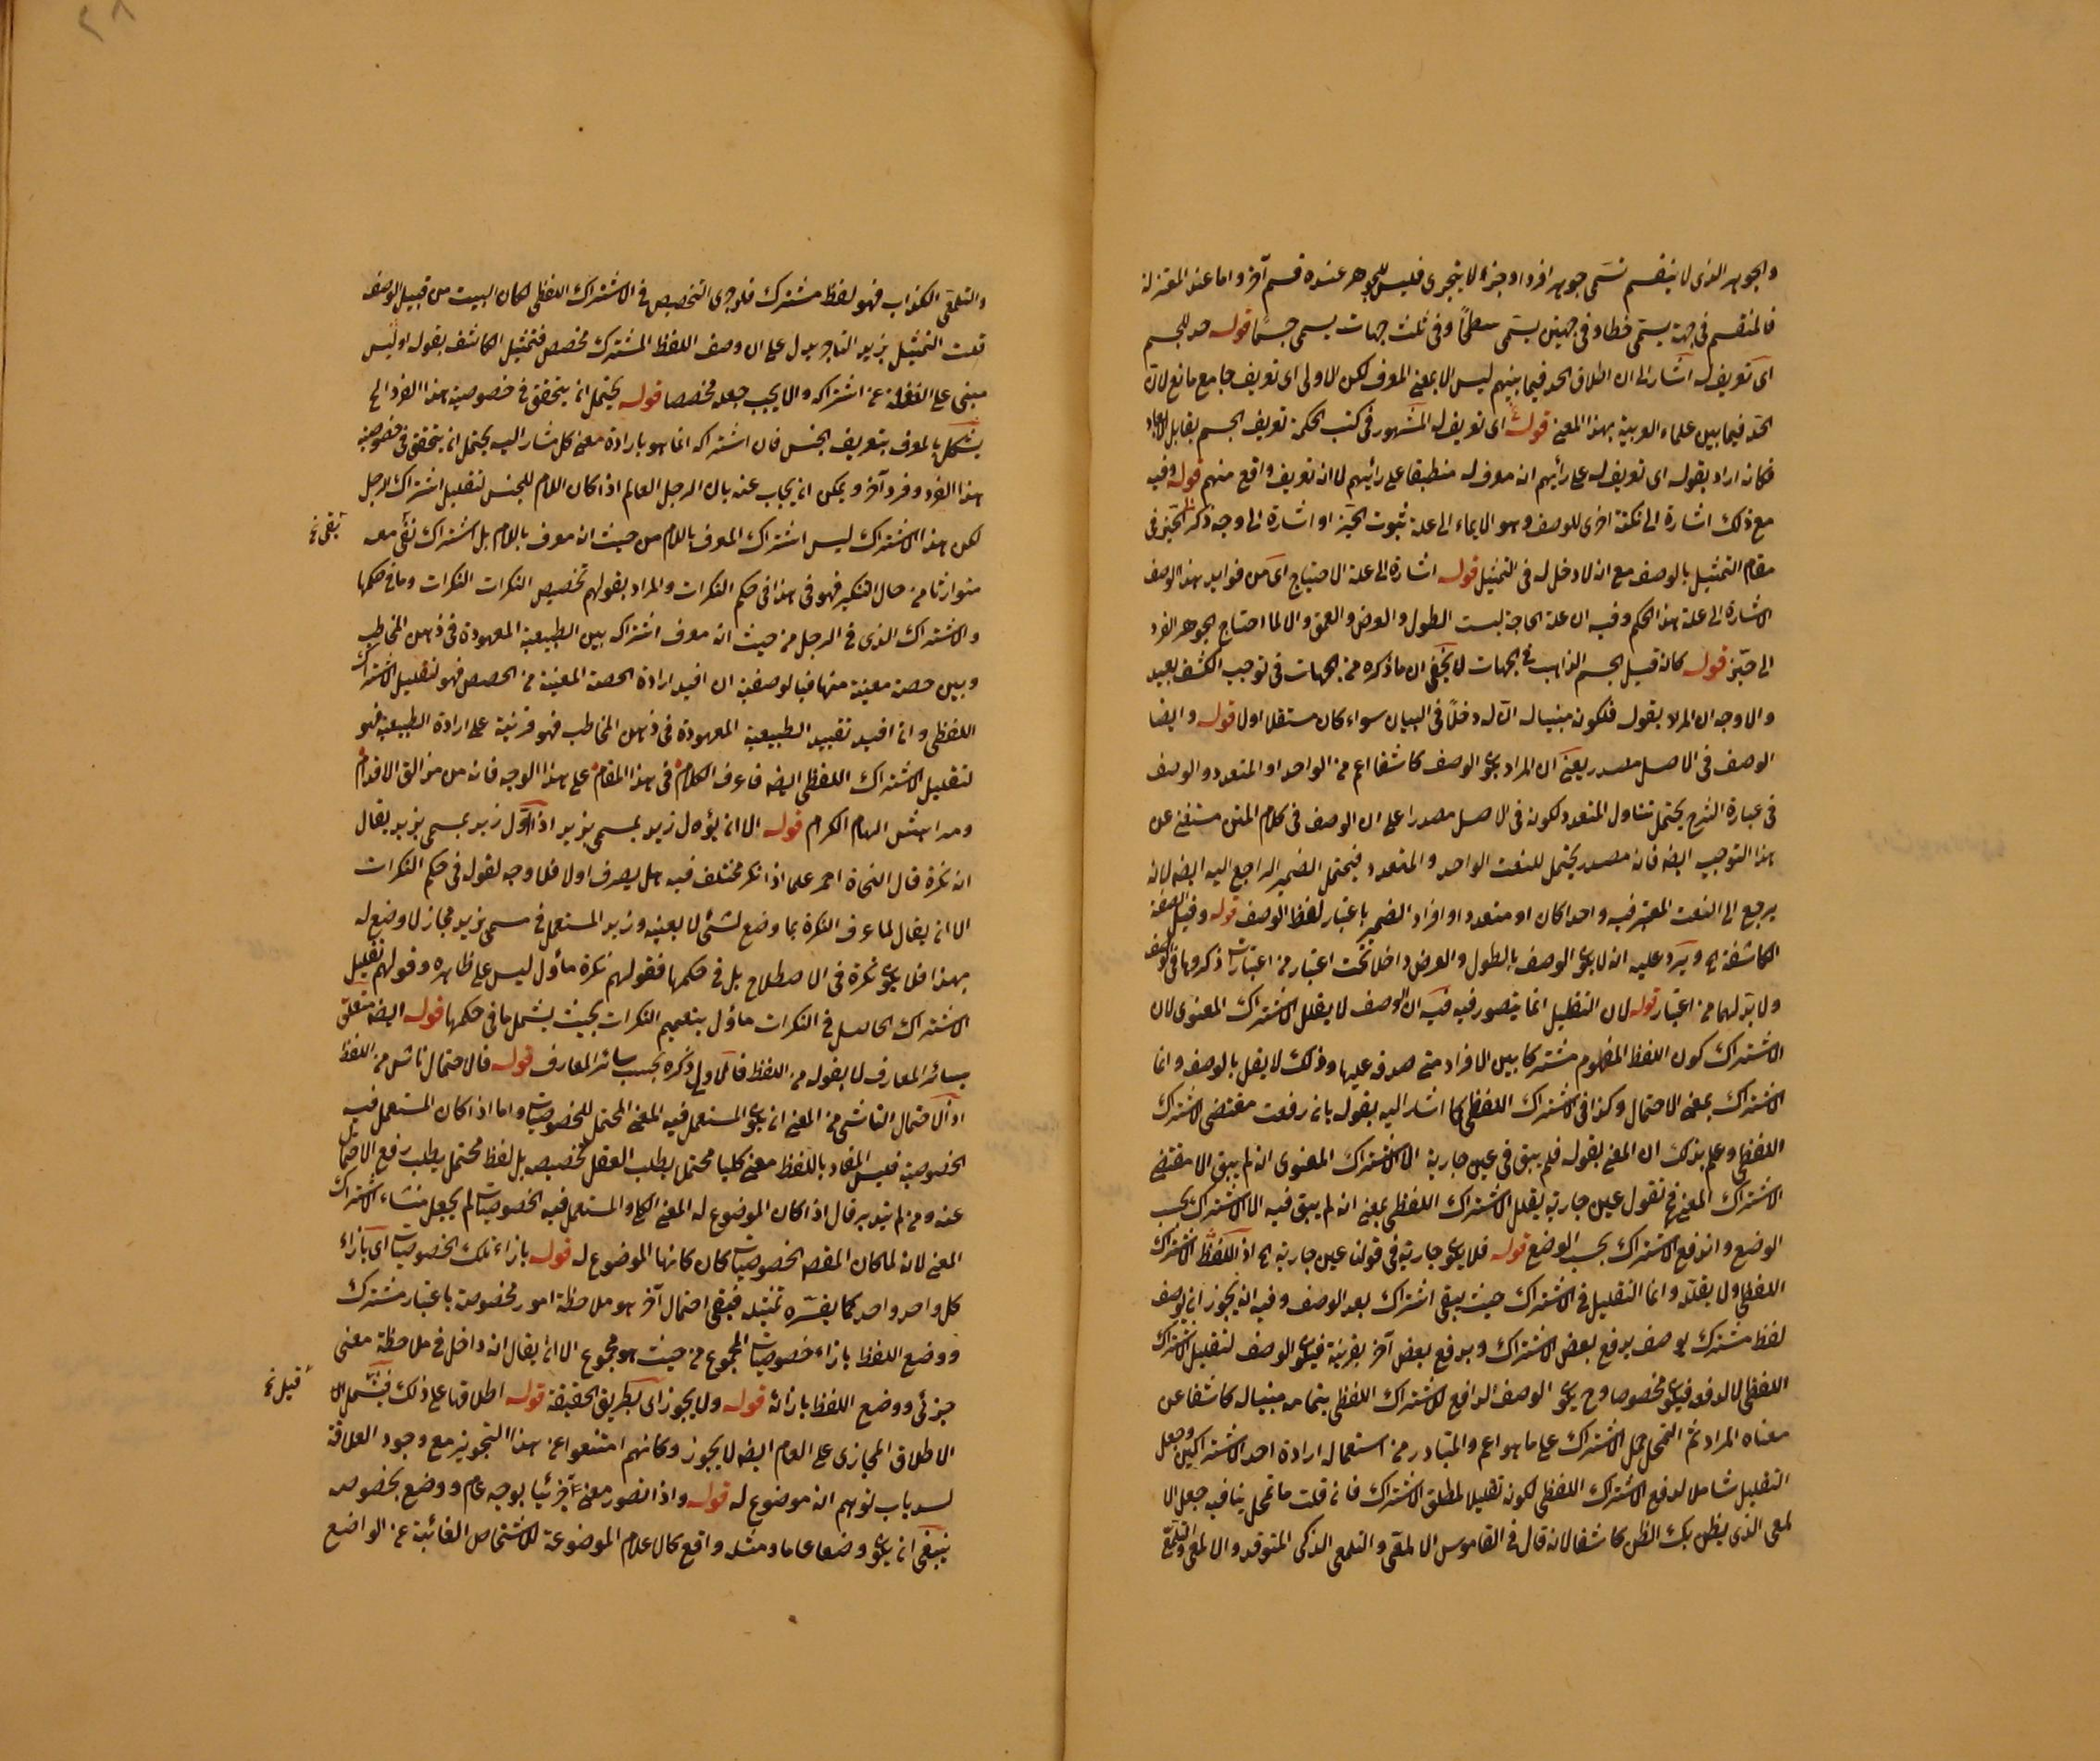 والجوهر الذى لا ينقسم تسمى جوهرا فردا وجزءا لا يتجزى فليس للجوهر عنده قسم آخر واما عند المعتزلة
فالمنقسم فى جهة يسمى خطا وفى جهتين يسمى سطحا وفى ثلث جهات يسمى جسما قوله حد للجسم
اى تعريف له اشار الى ان اطلاق الحد فيما بينهم ليس الا بمعنى المعرف لكن الاولى اى تعريف جامع مانع لان
الحد فيما بين علماء العربية بهذا المعنى قوله اى تعريف له المشهور فى كتب الحكمة تعريف الجسم بقابل الابعاد
فكانه اراد بقوله اى تعريف له على رأيهم انه معرف له منطبقا على رائيهم لا انه تعريف واقع منهم قوله وفيه
مع ذلك اشارة الى نكتة اخرى للوصف وهو الايماء الى علة ثبوت الحيز او اشارة الى وجه ذكر الحيز فى
مقام التمثيل بالوصف مع انه لا دخل له فى التمثيل قوله اشارة الى علة الاحتياج اى من فوايد هذا الوصف
الاشارة الى علة هذا الحكم وفيه ان علة الحاجة ليست الطول والعرض والعمق والا لما احتاج الجوهر الفرد
الى حيز قوله كانه قيل الجسم الذاهب فى الجهات لا يخفى ان ما ذكره من الجهات فى توجيه الكشف بعيد
والاوجه ان المراد بقوله فلكونه مبنيا له ان له دخلا فى البيان سواء كان مستقلا او لا قوله وايضا
الوصف فى الاصل مصدر يعنى ان المراد بكون الوصف كاشفا اعم من الواحد او المتعدد والوصف
فى عبارة الشرح يحتمل تناول المتعدد لكونه فى الاصل مصدرا على ان الوصف فى كلام المتن مستغن عن
هذا التوجيه ايضا فانه مصدر يحتمل للنعت الواحد والمتعدد فيحتمل الضمير الراجع اليه ايضا لانه
يرجع الى النعت المعتبر فيه واحدا كان او متعددا او افراد الضمير باعتبار لفظ الوصف قوله وقيل الصفة
الكاشفة الخ ويرد عليه انه لا يكون الوصف بالطول والعرض داخلا تحت اعتبار من اعتبارات ذكروها فى الوصف
ولا بد لهما من اعتبار قوله لان التقليل انما يتصور فيه فيه ان الوصف لا يقلل الاشتراك المعنوى لان
الاشتراك كون اللفظ المفهوم مشتركا بين الافراد متى صدق عليها وذلك لا يقل بالوصف وانما
الاشتراك بمعنى الاحتمال وكذا فى الاشتراك اللفظى كما اشار اليه بقوله بانه رفعت مقتضى الاشتراك
اللفظى وعلم بذلك ان المعنى بقوله فلم يبق فى عين جارية الا الاشتراك المعنوى انه لم يبق الا مقتضى
الاشتراك المعنى فح تقول عين جارية يقلل الاشتراك اللفظى بمعنى انه لم يبق فيه الا الاشتراك بحسب
الوضع واندفع الاشتراك بحسب الوضع قوله فلا يكون جارية فى قولنا عين جارية الخ اذ اللفظ الاشتراك
اللفظى ولا يقلله وانما التقليل فى الاشتراك حيث يبقى اشتراك بعد الوصف وفيه انه يجوز ان يوصف
لفظ مشترك بوصف يرفع بعض الاشتراك ويرفع بعض آخر بقرينة فيكون الوصف لتقليل الاشتراك
اللفظى لا لدفعه فيكون مخصصا وح يكون الوصف الدافع للاشتراك اللفظى بتمامه مبنيا له كاشفا عن
معناه المراد ثم التمحل حمل الاشتراك على ما هو اعم والمتبادر من استعماله ارادة احد الاشتراكين وجعل
التقليل شاملا لدفع الاشتراك اللفظى لكونه تقليلا لمطلق الاشتراك فان قلت ما تمحل ينافيه جعل الا
لمعى الذى يظن بك الظن كاشفا لانه قال فى القاموس الالمعى والتلمعى الذكى المتوقد والالمعى والتلمع
والتلمعى الكذاب فهو لفظ مشترك فلو جرى التخصيص فى الاشتراك اللفظى لكان البيت من قبيل الوصف
قلت التمثيل بزيد التاجر يدل على ان وصف اللفظ المشترك مخصص فتمثيل الكاشف بقول اوس
مبنى على الغفلة عن اشتراكه والا يجب جعله مخصصا قوله يحتمل ان يتحقق فى خصوصية هذا الفرد الخ
يشكل بالمعرف بتعريف الجنس فان اشتراكه انما هو بارادة معنى كل مشار اليه يحتمل ان يتحقق فى خصوصية
هذا الفرد وفرد آخر ويمكن ان يجاب عنه بان الرجل العالم اذا كان اللام للجنس لتقليل اشتراك لرجل
لكن هذا الاشتراك ليس اشتراك المعرف باللام من حيث انه معرف باللام بل اشتراك نفى معه
بقى نخ
متوارثا من حال التنكير فهو فى هذا فى حكم النكرات والمراد بقولهم تخصيص النكرات النكرات وما فى حكمها
والاشتراك الذى فى الرجل من حيث انه معرف اشتراكه بين الطبيعية المعهودة فى ذهن المخاطب
وبين حصة معينة منها فبالوصفية ان افيد ارادة الحصة المعينة من الحصص فهو لتقليل الاشتراك
اللفظى وان افيد تقييد الطبيعية المعهودة فى ذهن المخاطب فهو قرينة على ارادة الطبيعية فهو
لتقليل الاشتراك اللفظى ايضا فاعرف الكلام فى هذا المقام على هذا الوجه فانه من مزالق الاقدام
ومداهش الهام الكرام قوله الا ان يؤول زيد بمسمى بزيد اذا اول زيد بمسمى بزيد يقال
انه نكرة قال النحاة احمر علما اذا نكر مختلف فيه هل يصرف او لا فلا وجه لقوله فى حكم النكرات
الا ان يقال لما عرف النكرة بما وضع لشئ لا بعينه وزيد المستعمل فى مسمى بزيد مجاز لا وضع له
بهذا فلا يكون نكرة فى الاصطلاح بل فى حكمها فقولهم نكرة مأول ليس على ظاهره وقولهم تقليل
الاشتراك الحاصل فى النكرات مأول بتعميم النكرات بحيث يشمل ما فى حكمها قوله ايضا متعلق
بسائر المعارف لا بقوله من اللفظ فالاول ذكره بحسب سائر المعارف قوله فالاحتمال ناش من اللفظ
اذ الاحتمال الناشى من المعنى ان يكون المستعمل فيه المعنى المحتمل للخصوصيات واما اذا كان المستعمل فيه
الخصوصية فليس المفاد باللفظ معنى كليا محتملا يطلب العقل تخصيصه بل لفظ محتمل يطلب رفع الاحتمال
عنه ومن لم يتدبر قال اذا كان الموضوع له المعنى الكلى والمستعمل فيه الخصوصيات لم يجعل منشاء الاشتراك
المعنى لانه لما كان المقصد الخصوصيات كان كانها الموضوع له قوله بازاء تلك الخصوصيات اى بازاء
كل واحد واحد كما يفسره تمثيله فيبقى احتمال آخر هو ملاحظة امور مخصوصة باعتبار مشترك
ووضع اللفظ بازاء خصوصيات المجموع من حيث هو مجموع الا ان يقال انه داخل فى ملاحظة معنى
جزئى ووضع اللفظ بازائه قوله ولا يجوز اى بطريق الحقيقة قوله اطلاقها على ذلك فيشمل الا
قيل نخ
الاطلاق المجازى على العام ايضا لا يجوز وكانهم امتنعوا عن هذا التجويز مع وجود العلاقة
لسد باب توهم انه موضوع له قوله واذا تصور معنى جزئيا بوجه عام ووضع بخصوصه
ينبغى ان يكون وضعا عاما ومثله واقع كالاعلام الموضوعة للاشخاص الغائبة عن الواضع